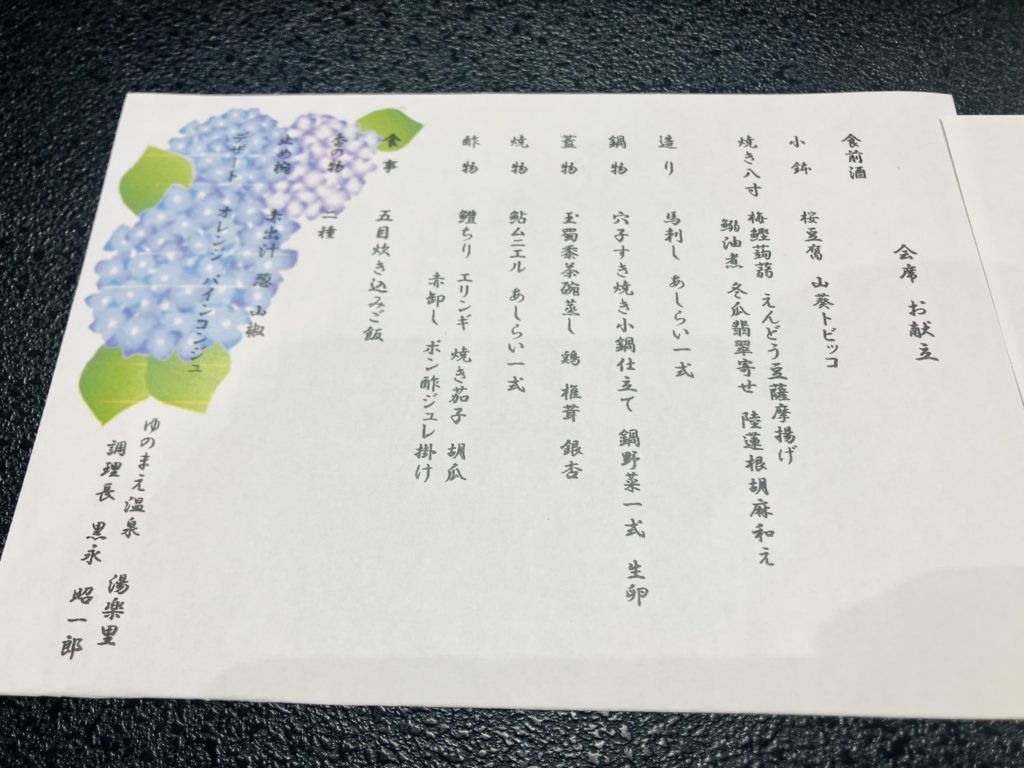 会席 お献立
食前酒
小鉢 桜豆腐 山葵トビッコ
焼き八寸 梅鰹蒟蒻 えんどう豆薩摩揚げ
鰯油煮 冬瓜翡翠寄せ 陸蓮根胡麻和え
造り 馬刺し あしらい一式
鍋物 穴子すき焼き小鍋仕立て 鍋野菜一式 生卵
蓋物 玉蜀黍茶碗蒸し 鶏 椎茸 銀杏
焼物 鮎ムニエル あしらい一式
酢物 鱧ちり エリンギ 焼き茄子 胡瓜
赤卸し ポン酢ジュレ掛け
食事 五目炊き込みご飯
香の物 二種
止め椀 赤出汁 葱 山椒
デザート オレンジ パインコンジュ
ゆのまえ温泉 湯楽里
調理長 黒永 昭一郎